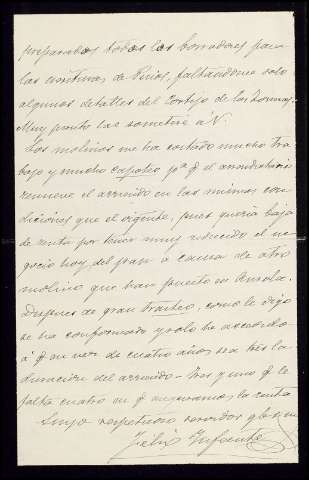 preparados todos los borradores para
las escrituras de Pinos, faltándome solo
algunos detalles del Cortijo de las Lomas.
Muy pronto las someteré a V.
Los molinos me ha costado mucho tra-
bajo y mucho capoteo pª q el arrendatario
renueve el arriendo en las mismas con-
diciones que el vigente, pues queria baja
de renta por tener muy reducido el ne-
gocio hoy del pan á causa de otro
molino que han puesto en
Despues de gran tracheo, como le digo
se ha conformado y solo he accedido
á q en vez de cuatro años sea tres la
duracion del arriendo - Tres y uno q le
falta cuatro en q aseguramos la renta
Suyo respetuoso servidor q b s m
Felix Infante